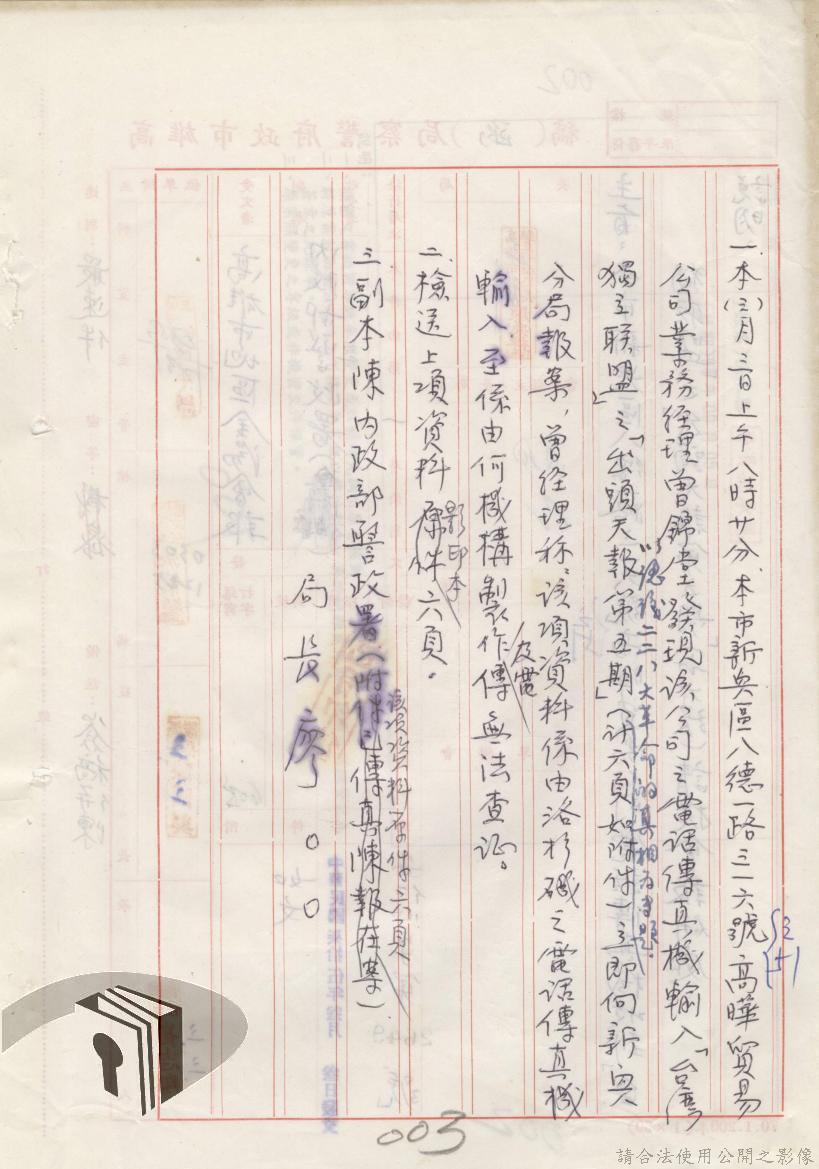 一、本(三)月三日上午八時廿分、本市新興區八德一路三一六號高曄貿易
公司業務經理曾錦堂發現該公司之電話傳真機輸入「台灣
獨立聯盟」之「出頭天報第五期」(計六頁如附件)立即向新興
二二八大革命的真相為專題
分局報案,曾經理称:該項資料係由洛杉磯之電話傳真機
輸入,至係由何機構製作傳無法查証。
及電
二、檢送上項資料原件六頁。
影印本
三、副本陳內政部警政署(附件已傳真陳報在案)
該項資料原件六頁
局長廖〇〇
003
請合法使用公開之影像